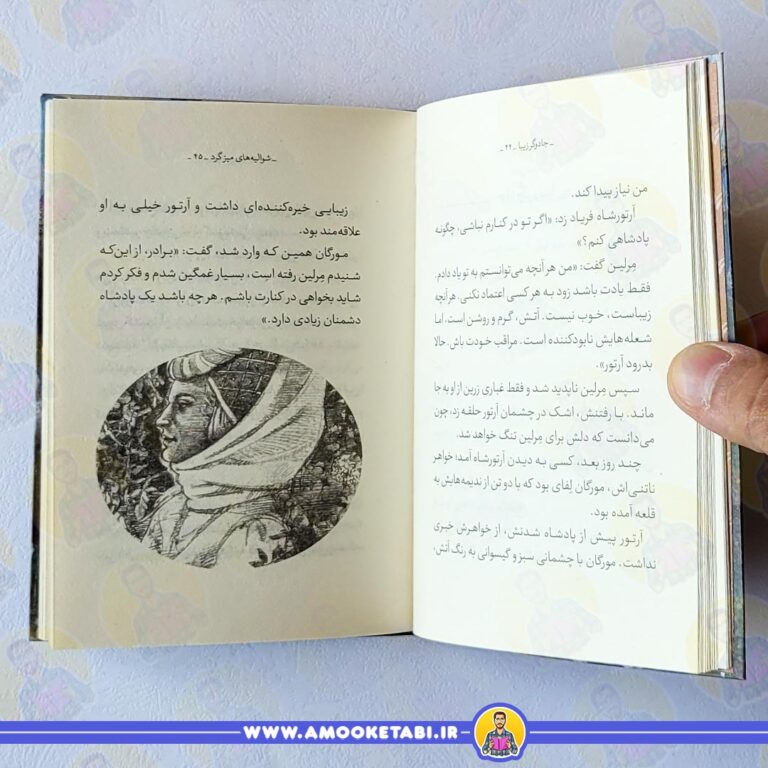 ـ جادوگر زیبا ـ ۲۴ ـ
من نیاز پیدا کند.
آرتورشاه فریاد زد: «اگر تو در کنارم نباشی، چگونه
پادشاهی کنم؟»
مِرلین گفت: «من هر آنچه می‌توانستم به تو یاد دادم.
فقط یادت باشد زود به هر کسی اعتماد نکنی. هر آنچه
زیباست، خوب نیست. آتش، گرم و روشن است، اما
شعله‌هایش نابودکننده است. مراقب خودت باش. حالا
بدرود آرتور».
سپس مِرلین ناپدید شد و فقط غباری زرین از او به جا
ماند. با رفتنش، اشک در چشمان آرتور حلقه زد، چون
می‌دانست که دلش برای مِرلین تنگ خواهد شد.
چند روز بعد، کسی به دیدن آرتورشاه آمد؛ خواهر
ناتنی‌اش، مورگان لِفای بود که با دو تن از ندیمه‌هایش به
قلعه آمده بود.
آرتور پیش از پادشاه شدنش، از خواهرش خبری
نداشت. مورگان با چشمانی سبز و گیسوانی به رنگ آتش،
ـ شوالیه‌های میز گرد ـ ۲۵ ـ
زیبایی خیره‌کننده‌ای داشت و آرتور خیلی به او
علاقه‌مند بود.
مورگان همین که وارد شد، گفت: «برادر، از این‌که
شنیدم مِرلین رفته است، بسیار غمگین شدم و فکر کردم
شاید بخواهی در کنارت باشم. هر چه باشد یک پادشاه
دشمنان زیادی دارد.»
WWW.AMOOKETABI.IR